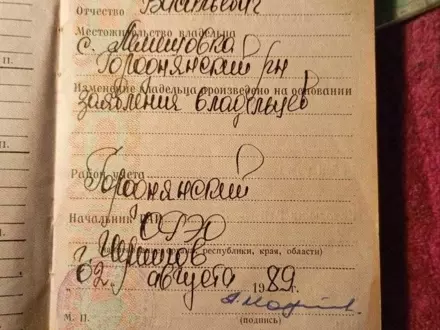 Отчество Васильевич
Местожительство владельца
с. Алешовка
Городнянский р-н
Изменение владельца произведено на основании
заявления владельцев
Район учета
Городнянский
Начальник ГАИ ОГЭО
г. Чернигов
(республики, края, области)
02. августа 1989 г.
М. П.
(подпись)
П.
П.